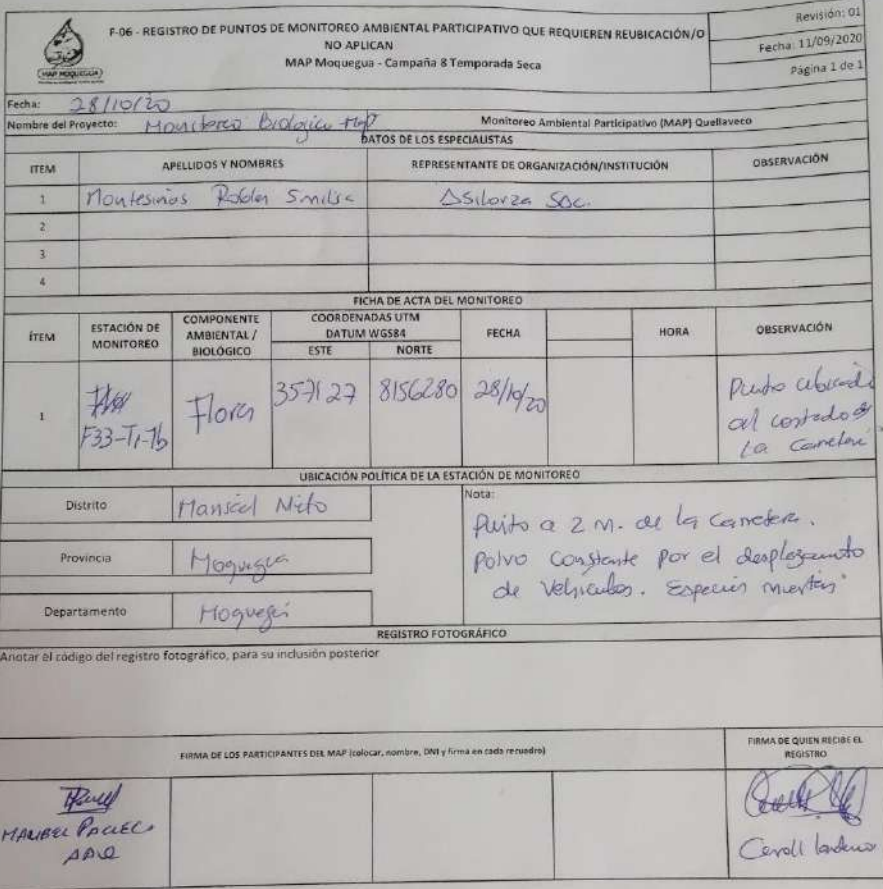 MAP MOQUEGUA
F-06 - REGISTRO DE PUNTOS DE MONITOREO AMBIENTAL PARTICIPATIVO QUE REQUIEREN REUBICACIÓN/O
NO APLICAN
MAP Moquegua - Campaña 8 Temporada Seca
Revisión: 01
Fecha: 11/09/2020
Página 1 de 1
Fecha: 28/10/20
Nombre del Proyecto: Monitoreo Biologico MAP Monitoreo Ambiental Participativo (MAP) Quellaveco
DATOS DE LOS ESPECIALISTAS
ITEM APELLIDOS Y NOMBRES REPRESENTANTE DE ORGANIZACIÓN/INSTITUCIÓN OBSERVACIÓN
1 Montesinos Robles SAC.
2
3
4
FICHA DE ACTA DEL MONITOREO
ÍTEM ESTACIÓN DE MONITOREO COMPONENTE AMBIENTAL / BIOLÓGICO COORDENADAS UTM DATUM WGS84 FECHA HORA OBSERVACIÓN
ESTE NORTE
1 F33-T1-7b Flora 357127 8156280 28/10/20 Punto ubicado
al costado de
la Carretera
UBICACIÓN POLÍTICA DE LA ESTACIÓN DE MONITOREO
Distrito Mariscal Nieto
Provincia Moquegua
Departamento Moquegua
Nota:
Punto a 2 m. de la Carretera.
Polvo constante por el desplazamiento
de Vehiculos. Especies muertas
REGISTRO FOTOGRÁFICO
Anotar el código del registro fotográfico, para su inclusión posterior
FIRMA DE LOS PARTICIPANTES DEL MAP (colocar, nombre, DNI y firma en cada recuadro)
FIRMA DE QUIEN RECIBE EL
REGISTRO
MARIBEL PACHECO
Caroll